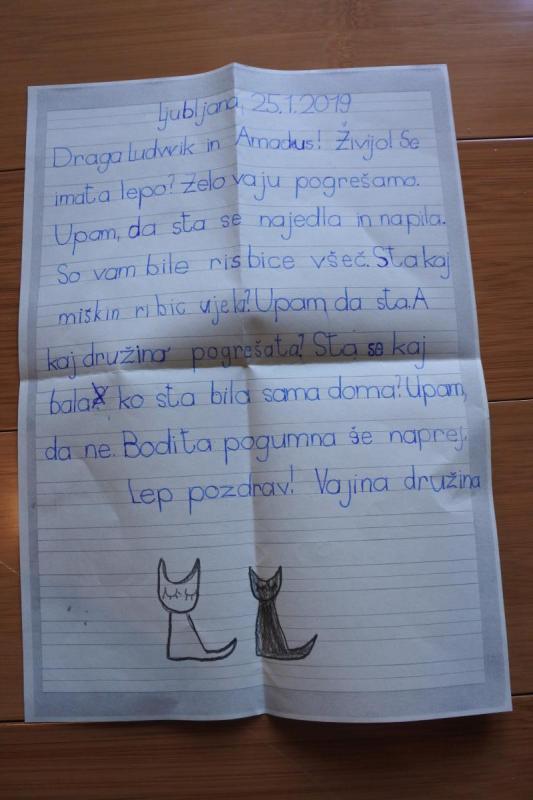 Ljubljana, 25.1.2019
Draga Ludwik in Amadus! Živijo! Se
imata lepo? Zelo vaju pogrešamo.
Upam, da sta se najedla in napila.
So vam bile risbice všeč. Sta kaj
miškin ribic ujela? Upam, da sta. A
kaj družina pogrešata? Sta se kaj
bala ko sta bila sama doma? Upam,
da ne. Bodita pogumna še naprej.
Lep pozdrav! Vajina družina